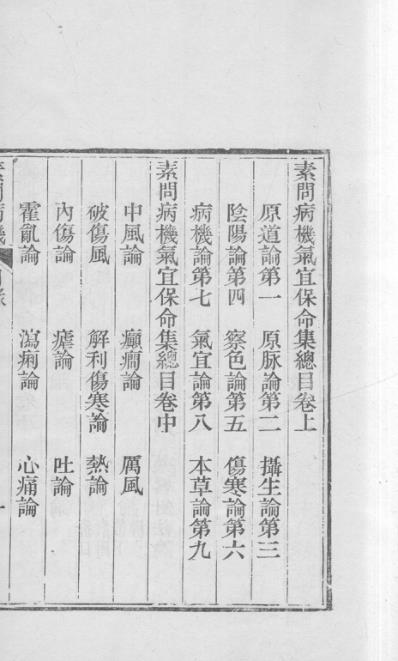 素問病機氣宜保命集總目卷上
原道論第一 原脉論第二 攝生論第三
陰陽論第四 察色論第五 傷寒論第六
病機論第七 氣宜論第八 本草論第九
素問病機氣宜保命集總目卷中
中風論 癲癎論 厲風
破傷風 解利傷寒論 熱論
內傷論 瘧論 吐論
霍亂論 瀉痢論 心痛論